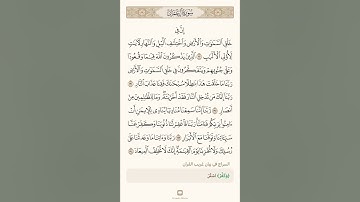 سورة آل عمران
إِنَّ فِي
خَلْقِ ٱلسَّمَٰوَٰتِ وَٱلْأَرْضِ وَٱخْتِلَٰفِ ٱلَّيْلِ وَٱلنَّهَارِ لَءَايَٰتٍ
لِّأُو۟لِي ٱلْأَلْبَٰبِ ۝ ٱلَّذِينَ يَذْكُرُونَ ٱللَّهَ قِيَٰمًا وَقُعُودًا
وَعَلَىٰ جُنُوبِهِمْ وَيَتَفَكَّرُونَ فِي خَلْقِ ٱلسَّمَٰوَٰتِ وَٱلْأَرْضِ
رَبَّنَا مَا خَلَقْتَ هَٰذَا بَٰطِلًا سُبْحَٰنَكَ فَقِنَا عَذَابَ ٱلنَّارِ ۝
رَبَّنَآ إِنَّكَ مَن تُدْخِلِ ٱلنَّارَ فَقَدْ أَخْزَيْتَهُۥ وَمَا لِلظَّٰلِمِينَ مِنْ
أَنصَارٍ ۝ رَّبَّنَآ إِنَّنَا سَمِعْنَا مُنَادِيًا يُنَادِي لِلْإِيمَٰنِ أَنْ
ءَامِنُوا۟ بِرَبِّكُمْ فَـَٔامَنَّا رَبَّنَا فَٱغْفِرْ لَنَا ذُنُوبَنَا وَكَفِّرْ عَنَّا
سَيِّـَٔاتِنَا وَتَوَفَّنَا مَعَ ٱلْأَبْرَارِ ۝ رَبَّنَا وَءَاتِنَا مَا وَعَدتَّنَا عَلَىٰ
رُسُلِكَ وَلَا تُخْزِنَا يَوْمَ ٱلْقِيَٰمَةِ إِنَّكَ لَا تُخْلِفُ ٱلْمِيعَادَ ۝
السراج في بيان غريب القرآن
﴿وَكَفِّرْ﴾ اسْتُرْ